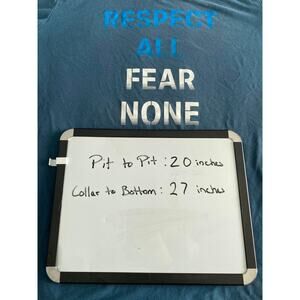 RESPECT
ALL
FEAR
NONE
Pit to Pit : 20 inches
Collar to Bottom : 27 inches